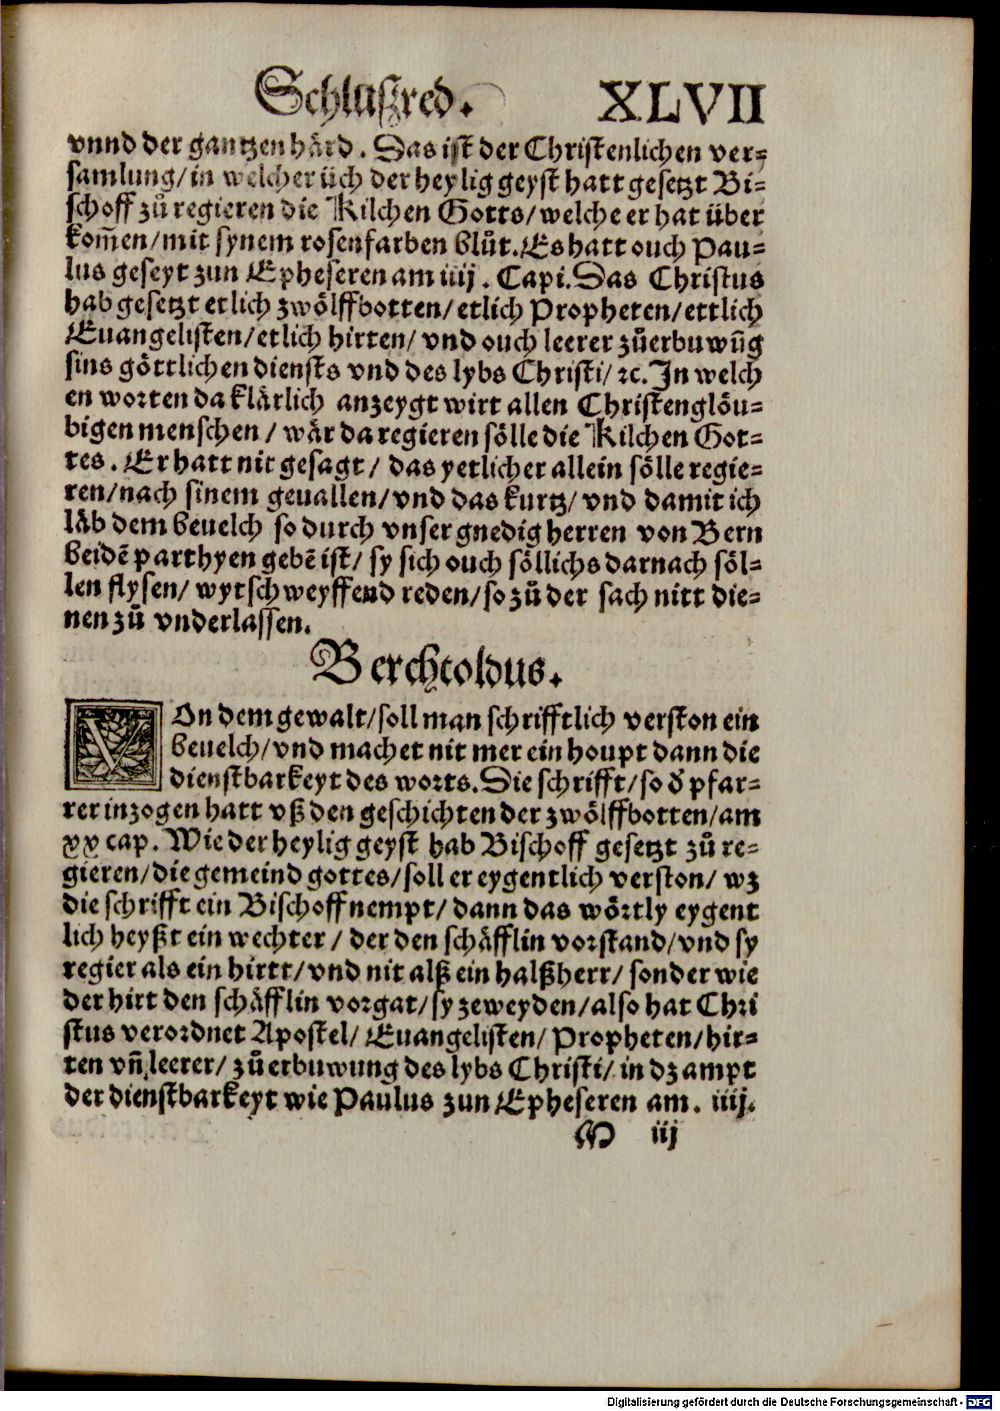 Schlußred. XLVII
vnnd der gantzen härd. Das ist der Christenlichen ver⸗
samlung/ in welcher üch der heylig geyst hatt gesetzt Bi⸗
schoff zů regieren die Kilchen Gotts/ welche er hat über
kom̄en/ mit synem rosenfarben blůt. Es hatt ouch Pau⸗
lus geseyt zun Epheseren am iiij. Capi. Das Christus
hab gesetzt etlich zwölffbotten/ etlich Propheten/ ettlich
Euangelisten/ etlich hirten/ vnd ouch leerer zů erbuwūg
sins göttlichen diensts vnd des lybs Christi/ ⁊c. In welch
en worten da klärlich anzeygt wirt allen Christenglöu⸗
bigen menschen/ wär da regieren sölle die Kilchen Got⸗
tes. Er hatt nit gesagt/ das yetlicher allein sölle regie⸗
ren/ nach sinem geuallen/ vnd das kurtz/ vnd damit ich
läb dem beuelch so durch vnser gnedig herren von Bern
beidē parthyen gebē ist/ sy sich ouch söllichs darnach söl⸗
len flysen/ wytschweyffend reden/ so zů der sach nitt die⸗
nen zů vnderlassen.
Berchtoldus.
VOn dem gewalt/ soll man schrifftlich verston ein
beuelch/ vnd machet nit mer ein houpt dann die
dienstbarkeyt des worts. Die schrifft/ so d̓ pfar⸗
rer inzogen hatt vß den geschichten der zwölffbotten/ am
xx cap. Wie der heylig geyst hab Bischoff gesetzt zů re⸗
gieren/ die gemeind gottes/ soll er eygentlich verston/ wz
die schrifft ein Bischoff nempt/ dann das wörtly eygent
lich heyßt ein wechter/ der den schäfflin vorstand/ vnd sy
regier als ein hirtt/ vnd nit alß ein halßherr/ sonder wie
der hirt den schäfflin vorgat/ sy zeweyden/ also hat Chri
stus verordnet Apostel/ Euangelisten/ Propheten/ hir⸗
ten vn̄ leerer/ zů erbuwung des lybs Christi/ in dz ampt
der dienstbarkeyt wie Paulus zun Epheseren am. iiij.
M iij
Digitalisierung gefördert durch die Deutsche Forschungsgemeinschaft - DFG